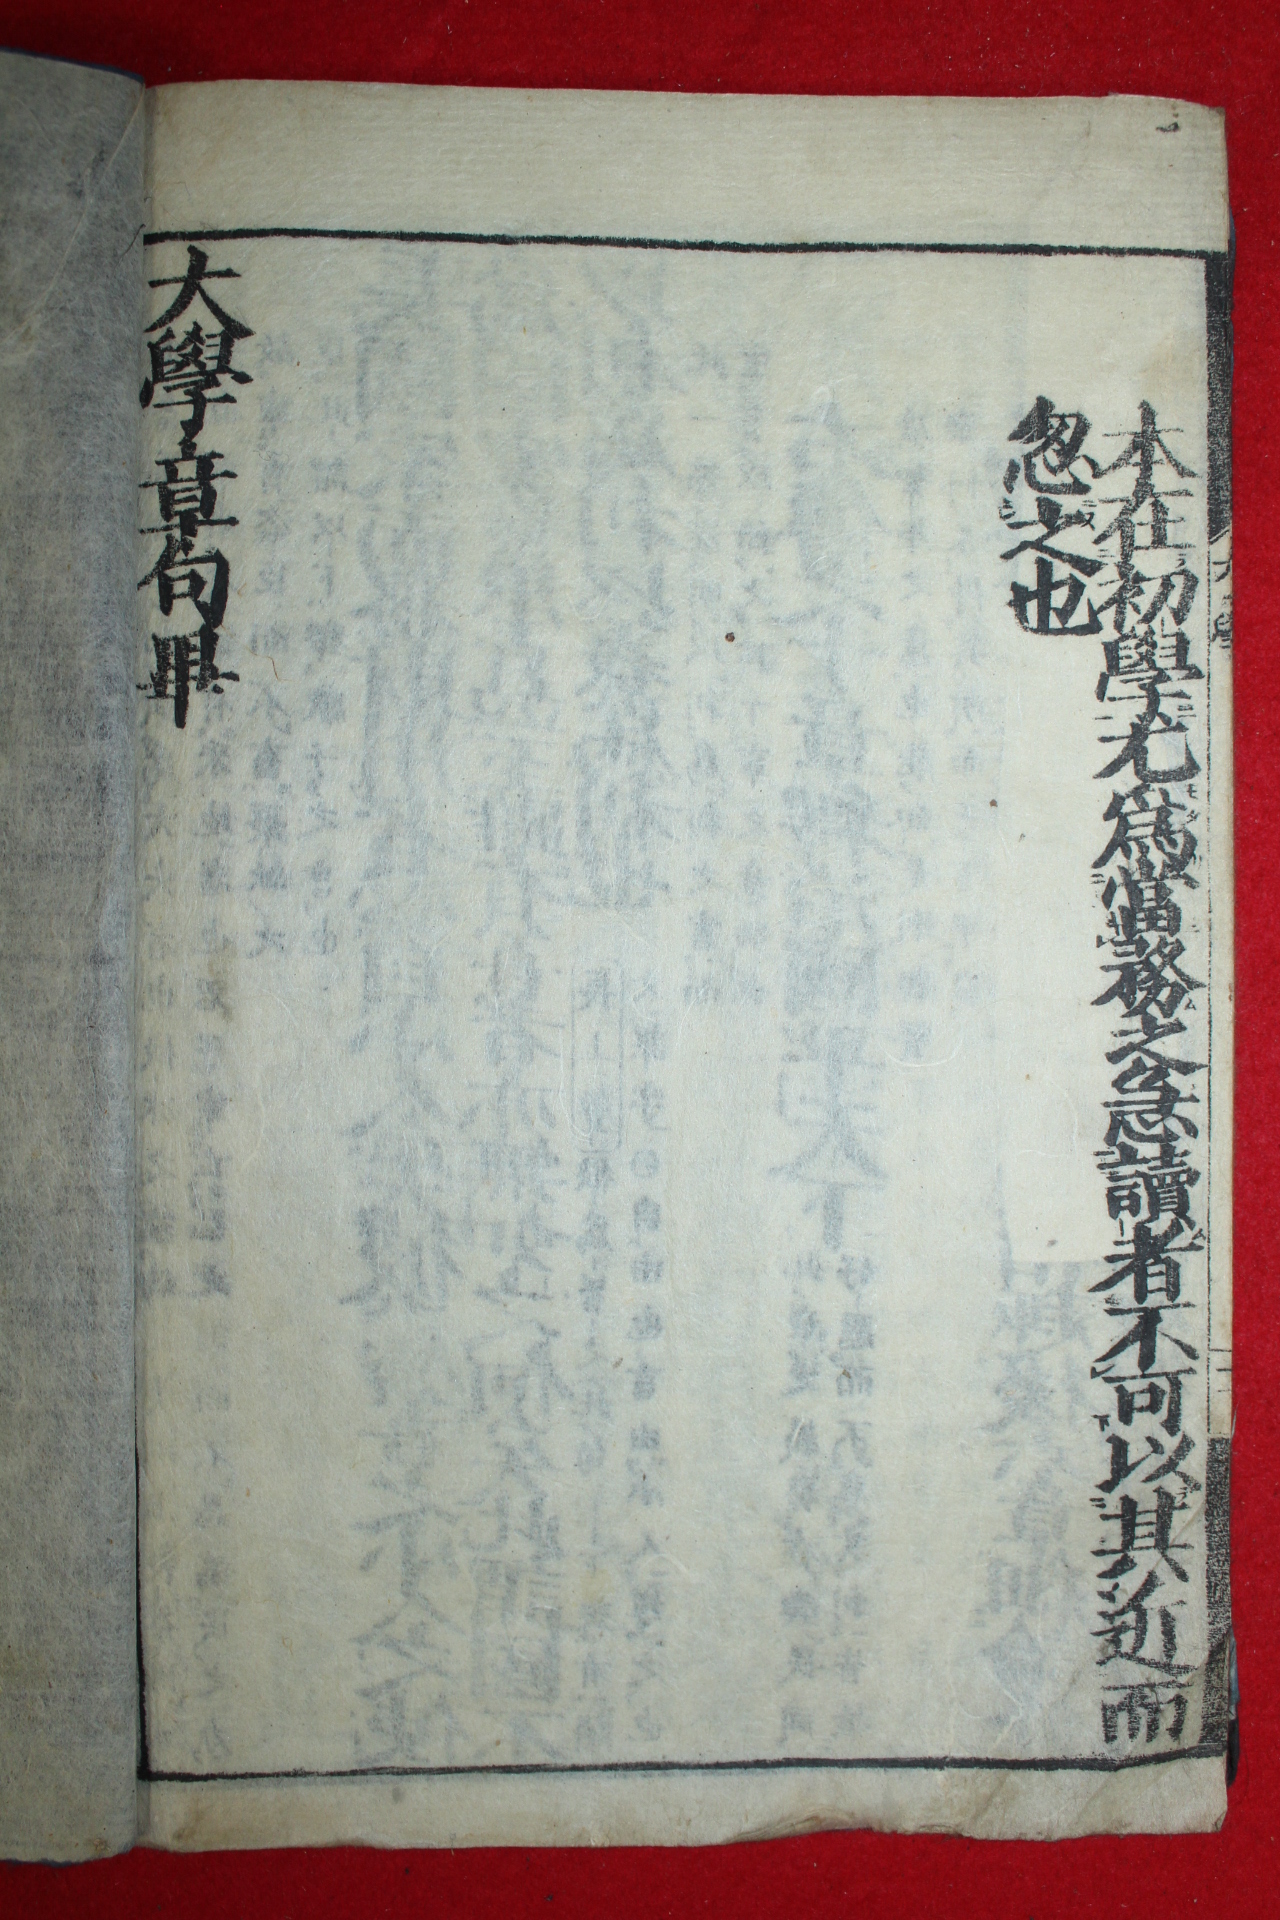 本在初學尤爲當務之急讀者不可以其近而
忽之也
大學章句畢
大學